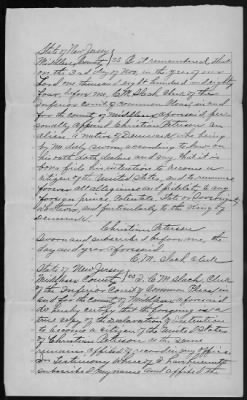 State of New Jersey
Middlesex County } SS Be it remembered that
on the 3rd day of Nov. in the year of our
Lord one thousand eight hundred and eighty
four before me, C M Slack Clerk of the
Inferior court of common Pleas, in and
for the county of Middlesex aforesaid per-
sonally appeared Christian Petersen an
alien a native of Denmark who being
by me duly sworn according to law on
his oath doth declare and say that it is
bona fide his intention to become a
citizen of the United States, and to renounce
forever all allegiance and fidelity to any
foreign prince, Potentate, State or Sovereignty
whatever, and particularly to the King of
Denmark.
Christian Petersen
Sworn and subscribed before me, the
day and year aforesaid
C. M. Slack Clerk
State of New Jersey
Middlesex County } SS I, C M Slack, Clerk
of the Inferior Court of Common Pleas in
and for the County of Middlesex aforesaid
do hereby certify that the foregoing is a
true copy of the declaration of intention
to become a citizen of the United States
of Christian Petersen as the same
remains of record in my office
In testimony whereof I have hereunto
subscribed my name and affixed the